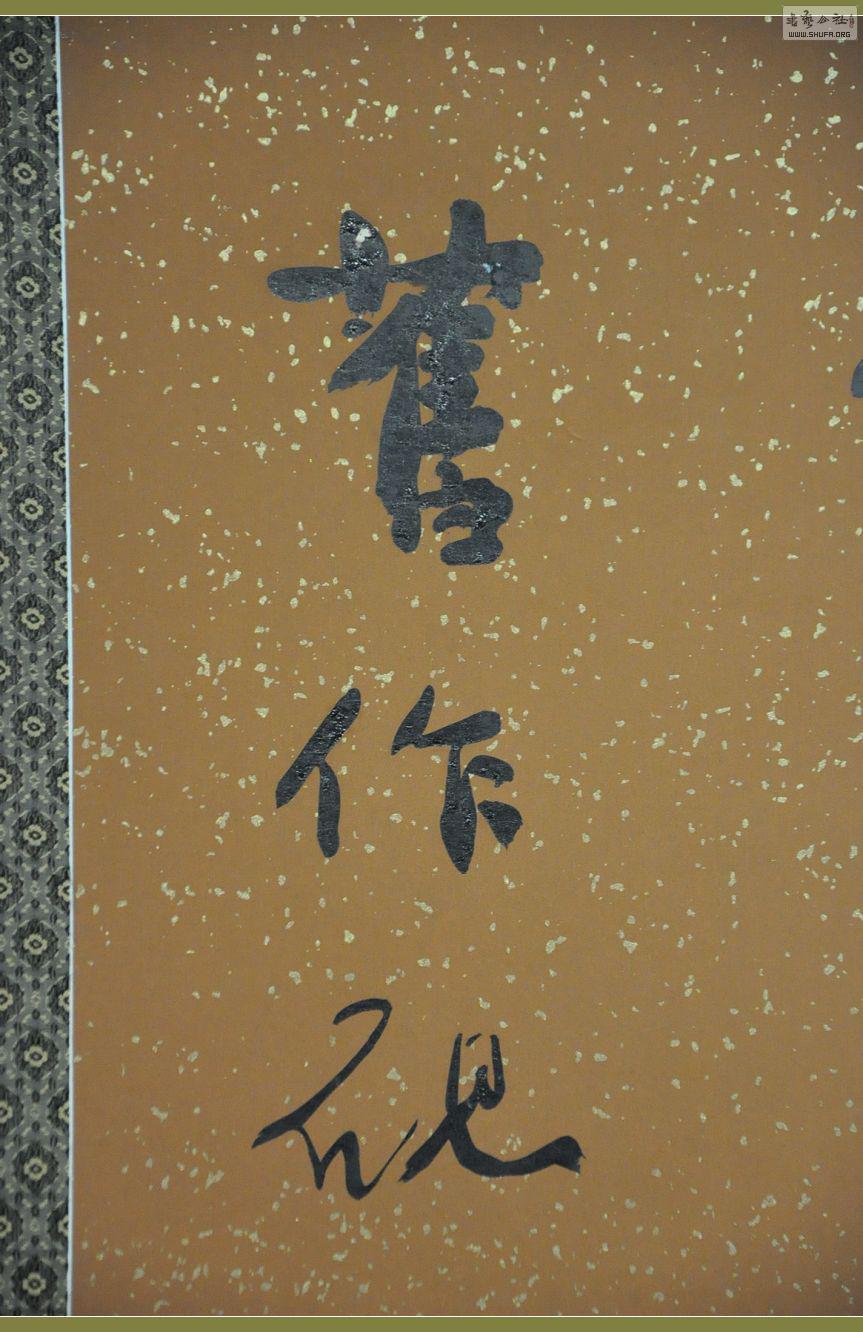 舊作硯
書藝公社
WWW.SHUFA.ORG